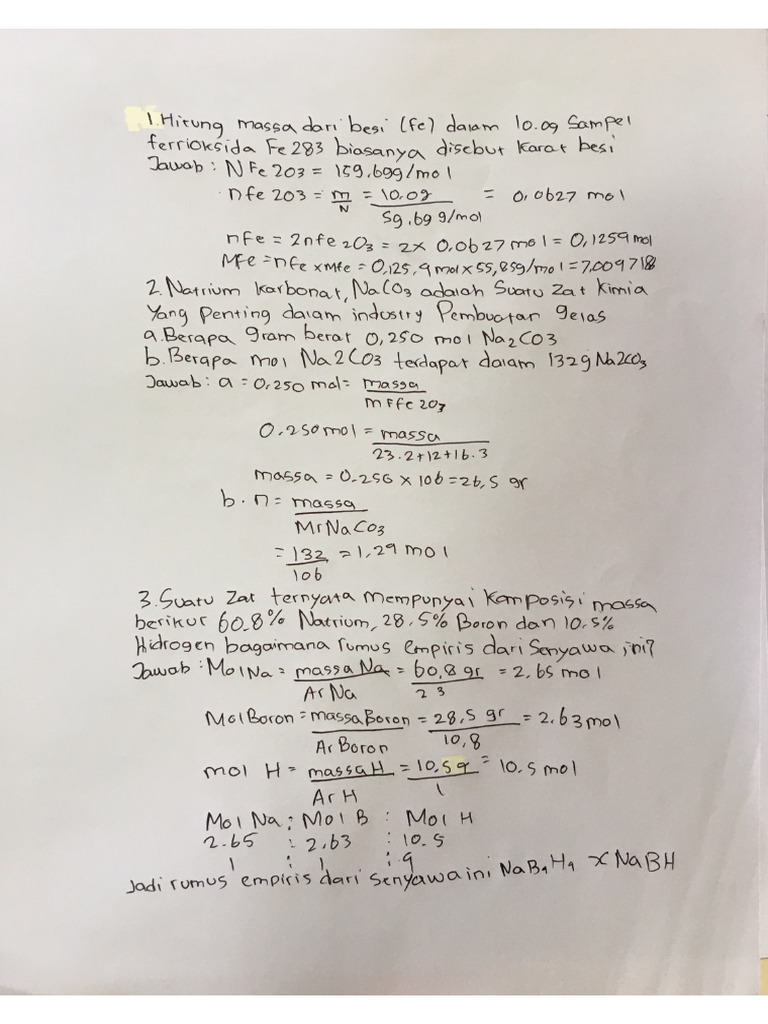 1. Hitung massa dari besi (Fe) dalam 10.0g Sampel
ferrioksida Fe283 biasanya disebut karat besi
Jawab : N Fe 203 = 159.69g/mol
nfe 203 = m/N = 10.0g / 59.69 g/mol = 0,0627 mol
nfe = 2nfe 2O3 = 2x 0,0627 mol = 0,1259 mol
Mfe = nfe x Mfe = 0,125,9 mol x 55,85g/mol = 7,009718
2. Natrium karbonat, NaCO3 adalah Suatu Zat Kimia
Yang Penting dalam industry Pembuatan gelas
a. Berapa gram berat 0,250 mol Na2CO3
b. Berapa mol Na2CO3 terdapat dalam 132g Na2CO3
Jawab : a = 0,250 mol = massa / mFfe 203
0.250 mol = massa / 23.2+12+16.3
massa = 0.250 x 106 = 26,5 gr
b. n = massa / Mr NaCO3
= 132 / 106 = 1,29 mol
3. Suatu Zat ternyata mempunyai komposisi massa
berikur 60.8% Natrium, 28.5% Boron dan 10.5%
Hidrogen bagaimana rumus empiris dari Senyawa ini?
Jawab : Mol Na = massa Na / Ar Na = 60,8 gr / 23 = 2,65 mol
Mol Boron = massa Boron / Ar Boron = 28,5 gr / 10,8 = 2,63 mol
mol H = massa H / Ar H = 10,5 g / 1 = 10.5 mol
Mol Na : Mol B : Mol H
2.65 : 2,63 : 10.5
1 : 1 : 9
Jadi rumus empiris dari senyawa ini NaB9H9 x NaBH